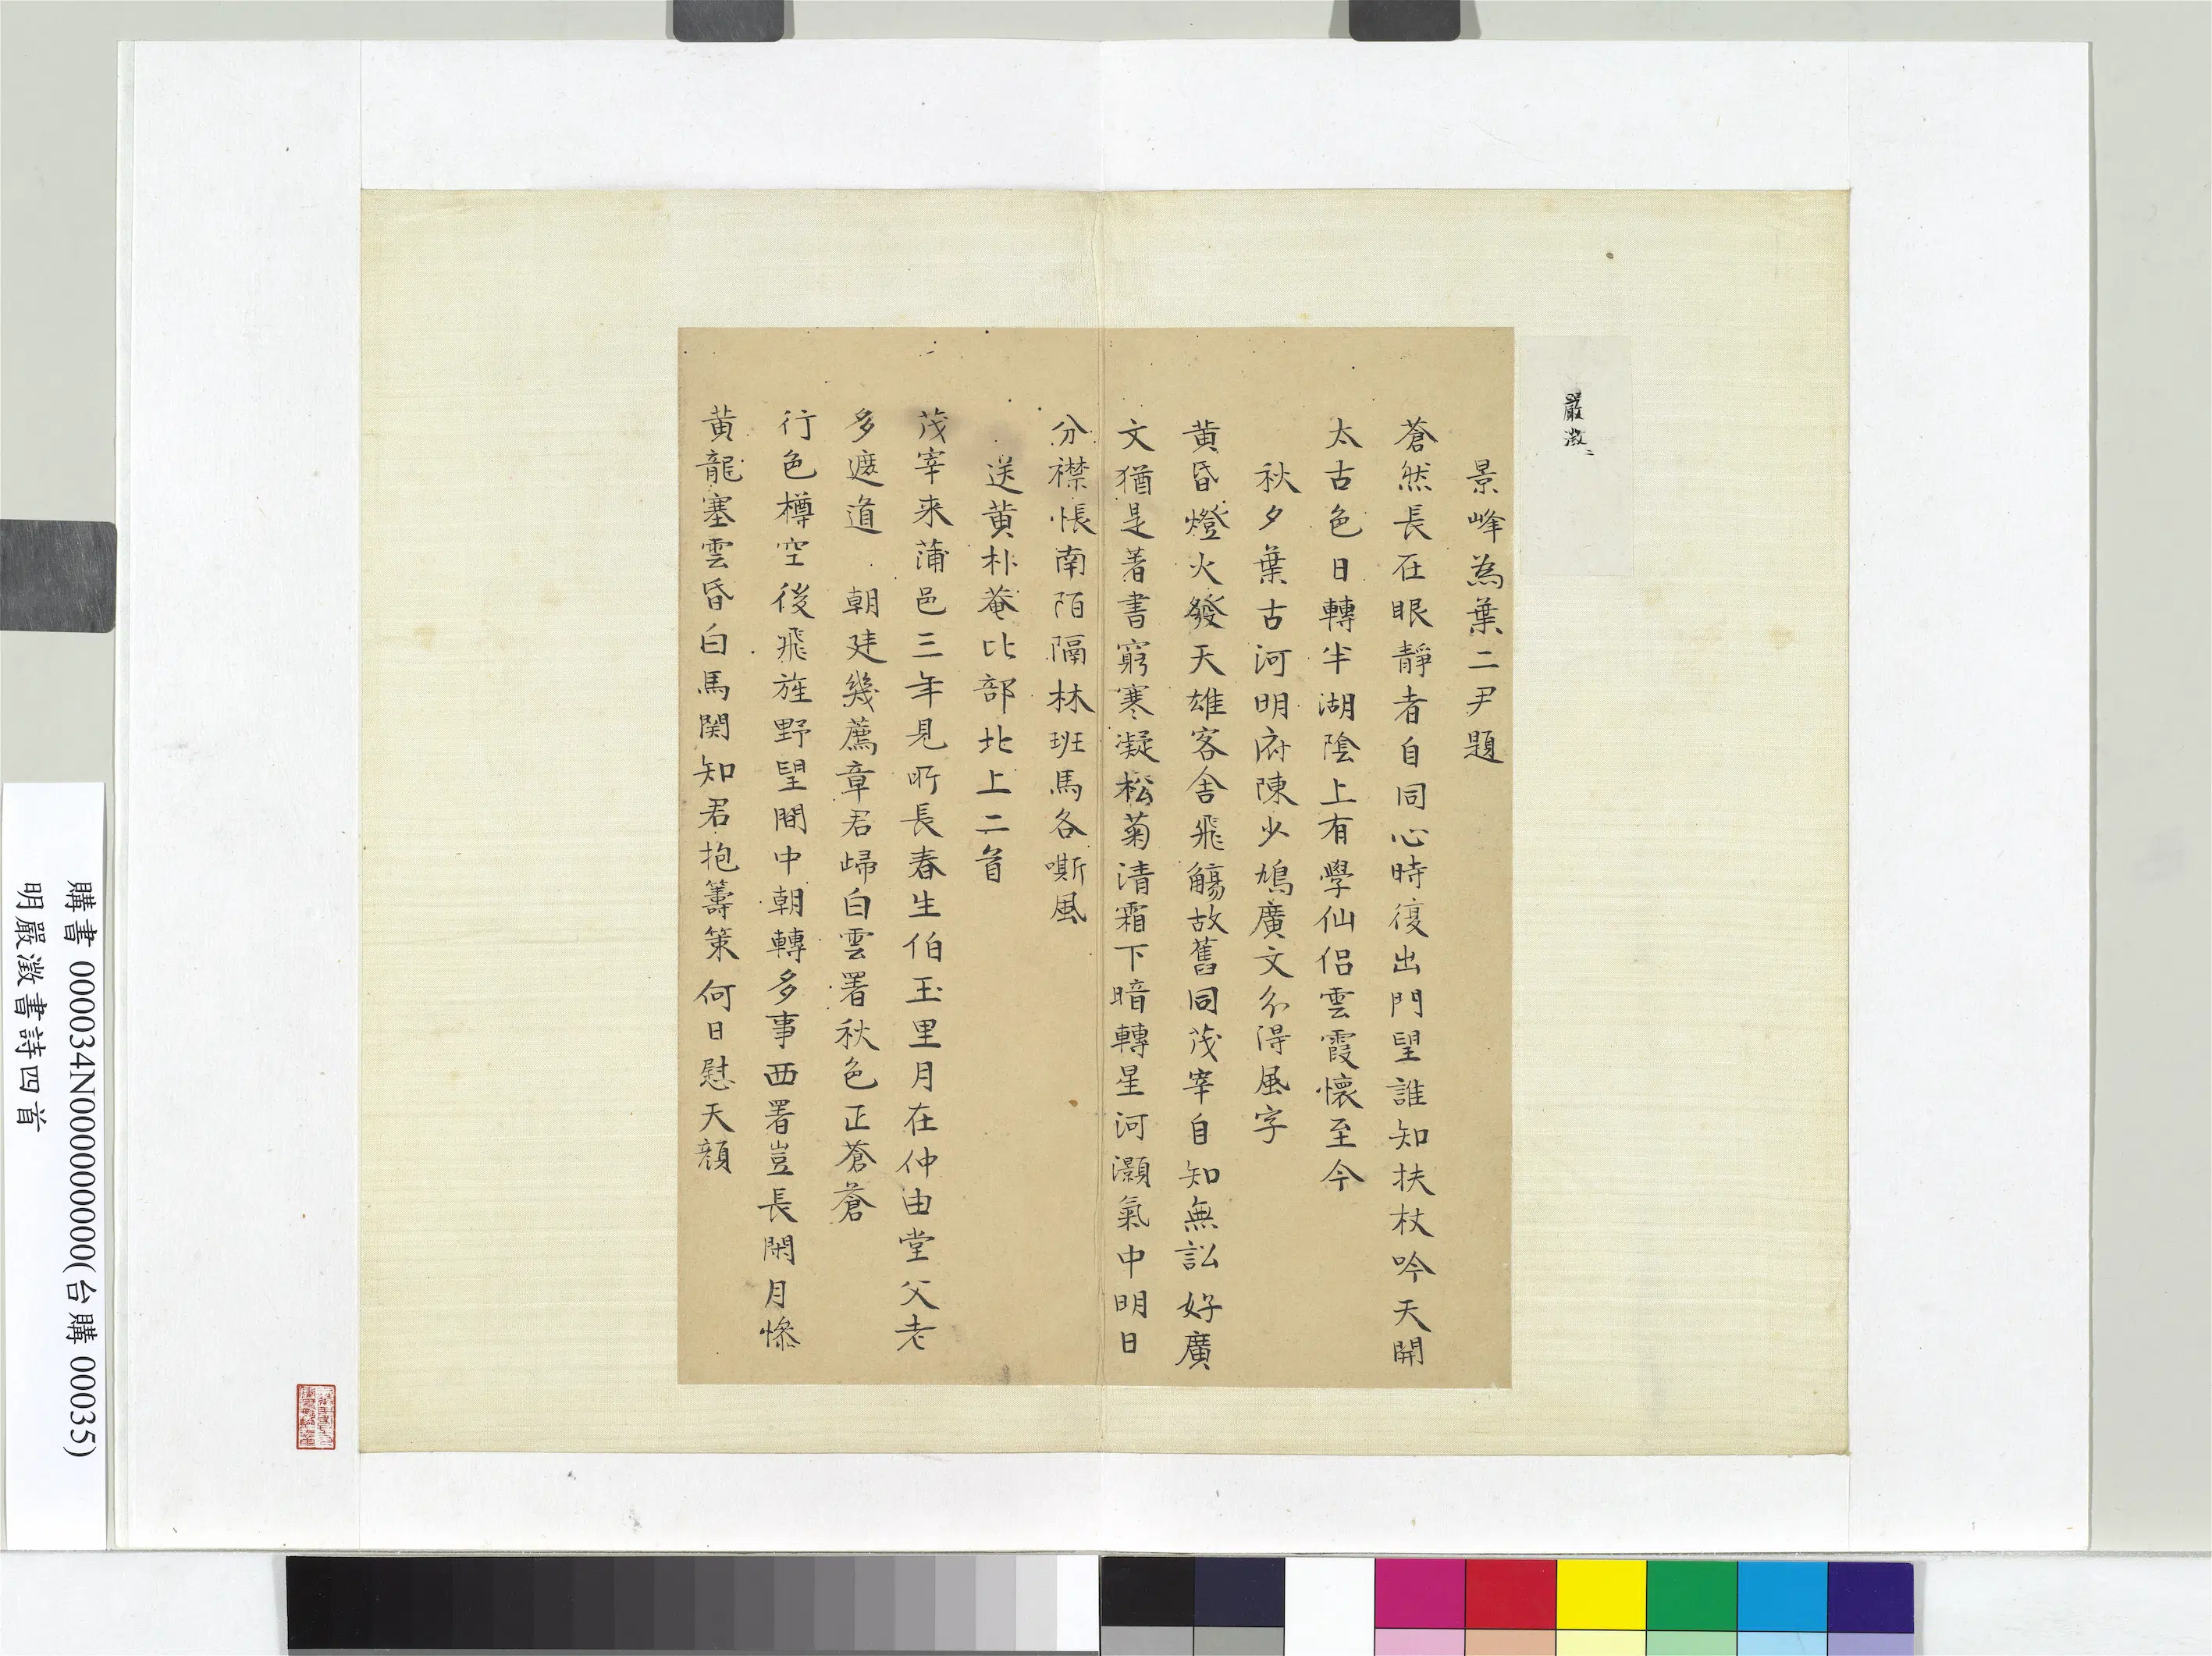 嚴澂
景峰為葉二尹題
蒼然長在眼靜者自同心時復出門望誰知扶杖吟天開
太古色日轉半湖陰上有學仙侶雲霞懷至今
秋夕葉古河明府陳少鳩廣文分得風字
黃昏燈火發天雄客舍飛觴故舊同茂宰自知無訟好廣
文猶是著書窮寒凝松菊清霜下暗轉星河灝氣中明日
分襟悵南陌隔林班馬各嘶風
送黃朴菴比部北上二首
茂宰来蒲邑三年見所長春生伯玉里月在仲由堂父老
多遮道 朝廷幾薦章君歸白雲署秋色正蒼蒼
行色樽空後飛旌野望間中朝轉多事西署豈長閑月慘
黃龍塞雲昏白馬関知君抱籌策何日慰天顏
購書 000034N000000000(台購 00035)
明嚴澂書詩四首